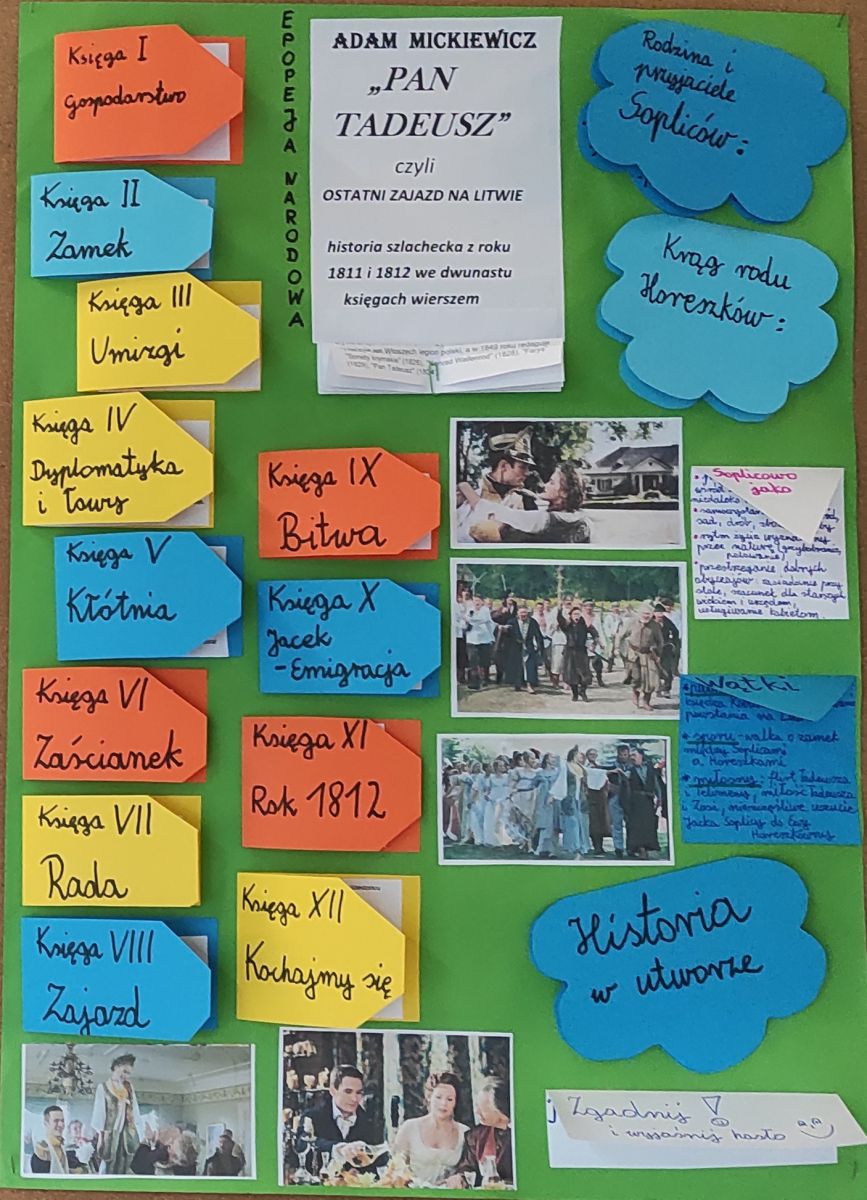 Księga I
Gospodarstwo
Księga II
Zamek
Księga III
Umizgi
Księga IV
Dyplomatyka
i łowy
Księga V
Kłótnia
Księga VI
Zaścianek
Księga VII
Rada
Księga VIII
Zajazd
EPOPEJA NARODOWA
ADAM MICKIEWICZ
„PAN
TADEUSZ”
czyli
OSTATNI ZAJAZD NA LITWIE
historia szlachecka z roku
1811 i 1812 we dwunastu
księgach wierszem
Włoszech legion polski, a w 1849 roku redaguje
"Sonety krymskie" (1826), "Konrad Wallenrod" (1828), "Farys"
(1829), "Pan Tadeusz"
Księga IX
Bitwa
Księga X
Jacek
-Emigracja
Księga XI
Rok 1812
Księga XII
Kochajmy się
Rodzina i
przyjaciele
Sopliców:
Krąg rodu
Horeszków:
Soplicowo
jako
sad, drób,
• rytm życia
przez naturę (grzybobranie,
polowanie)
• przestrzeganie dobrych
obyczajów: zasiadanie przy
stole, szacunek dla starszych
wiekiem i urzędem,
usługiwanie kobietom.
Wątki
powstania na
• sporu - walka o zamek
między Soplicami
a Horeszkami
• miłosny: flirt Tadeusza
i Telimeny, miłość Tadeusza
i Zosi, nieszczęśliwe uczucie
Jacka Soplicy do Ewy
Horeszkówny
Historia
w utworze
Zgadnij!
i wyjaśnij hasło